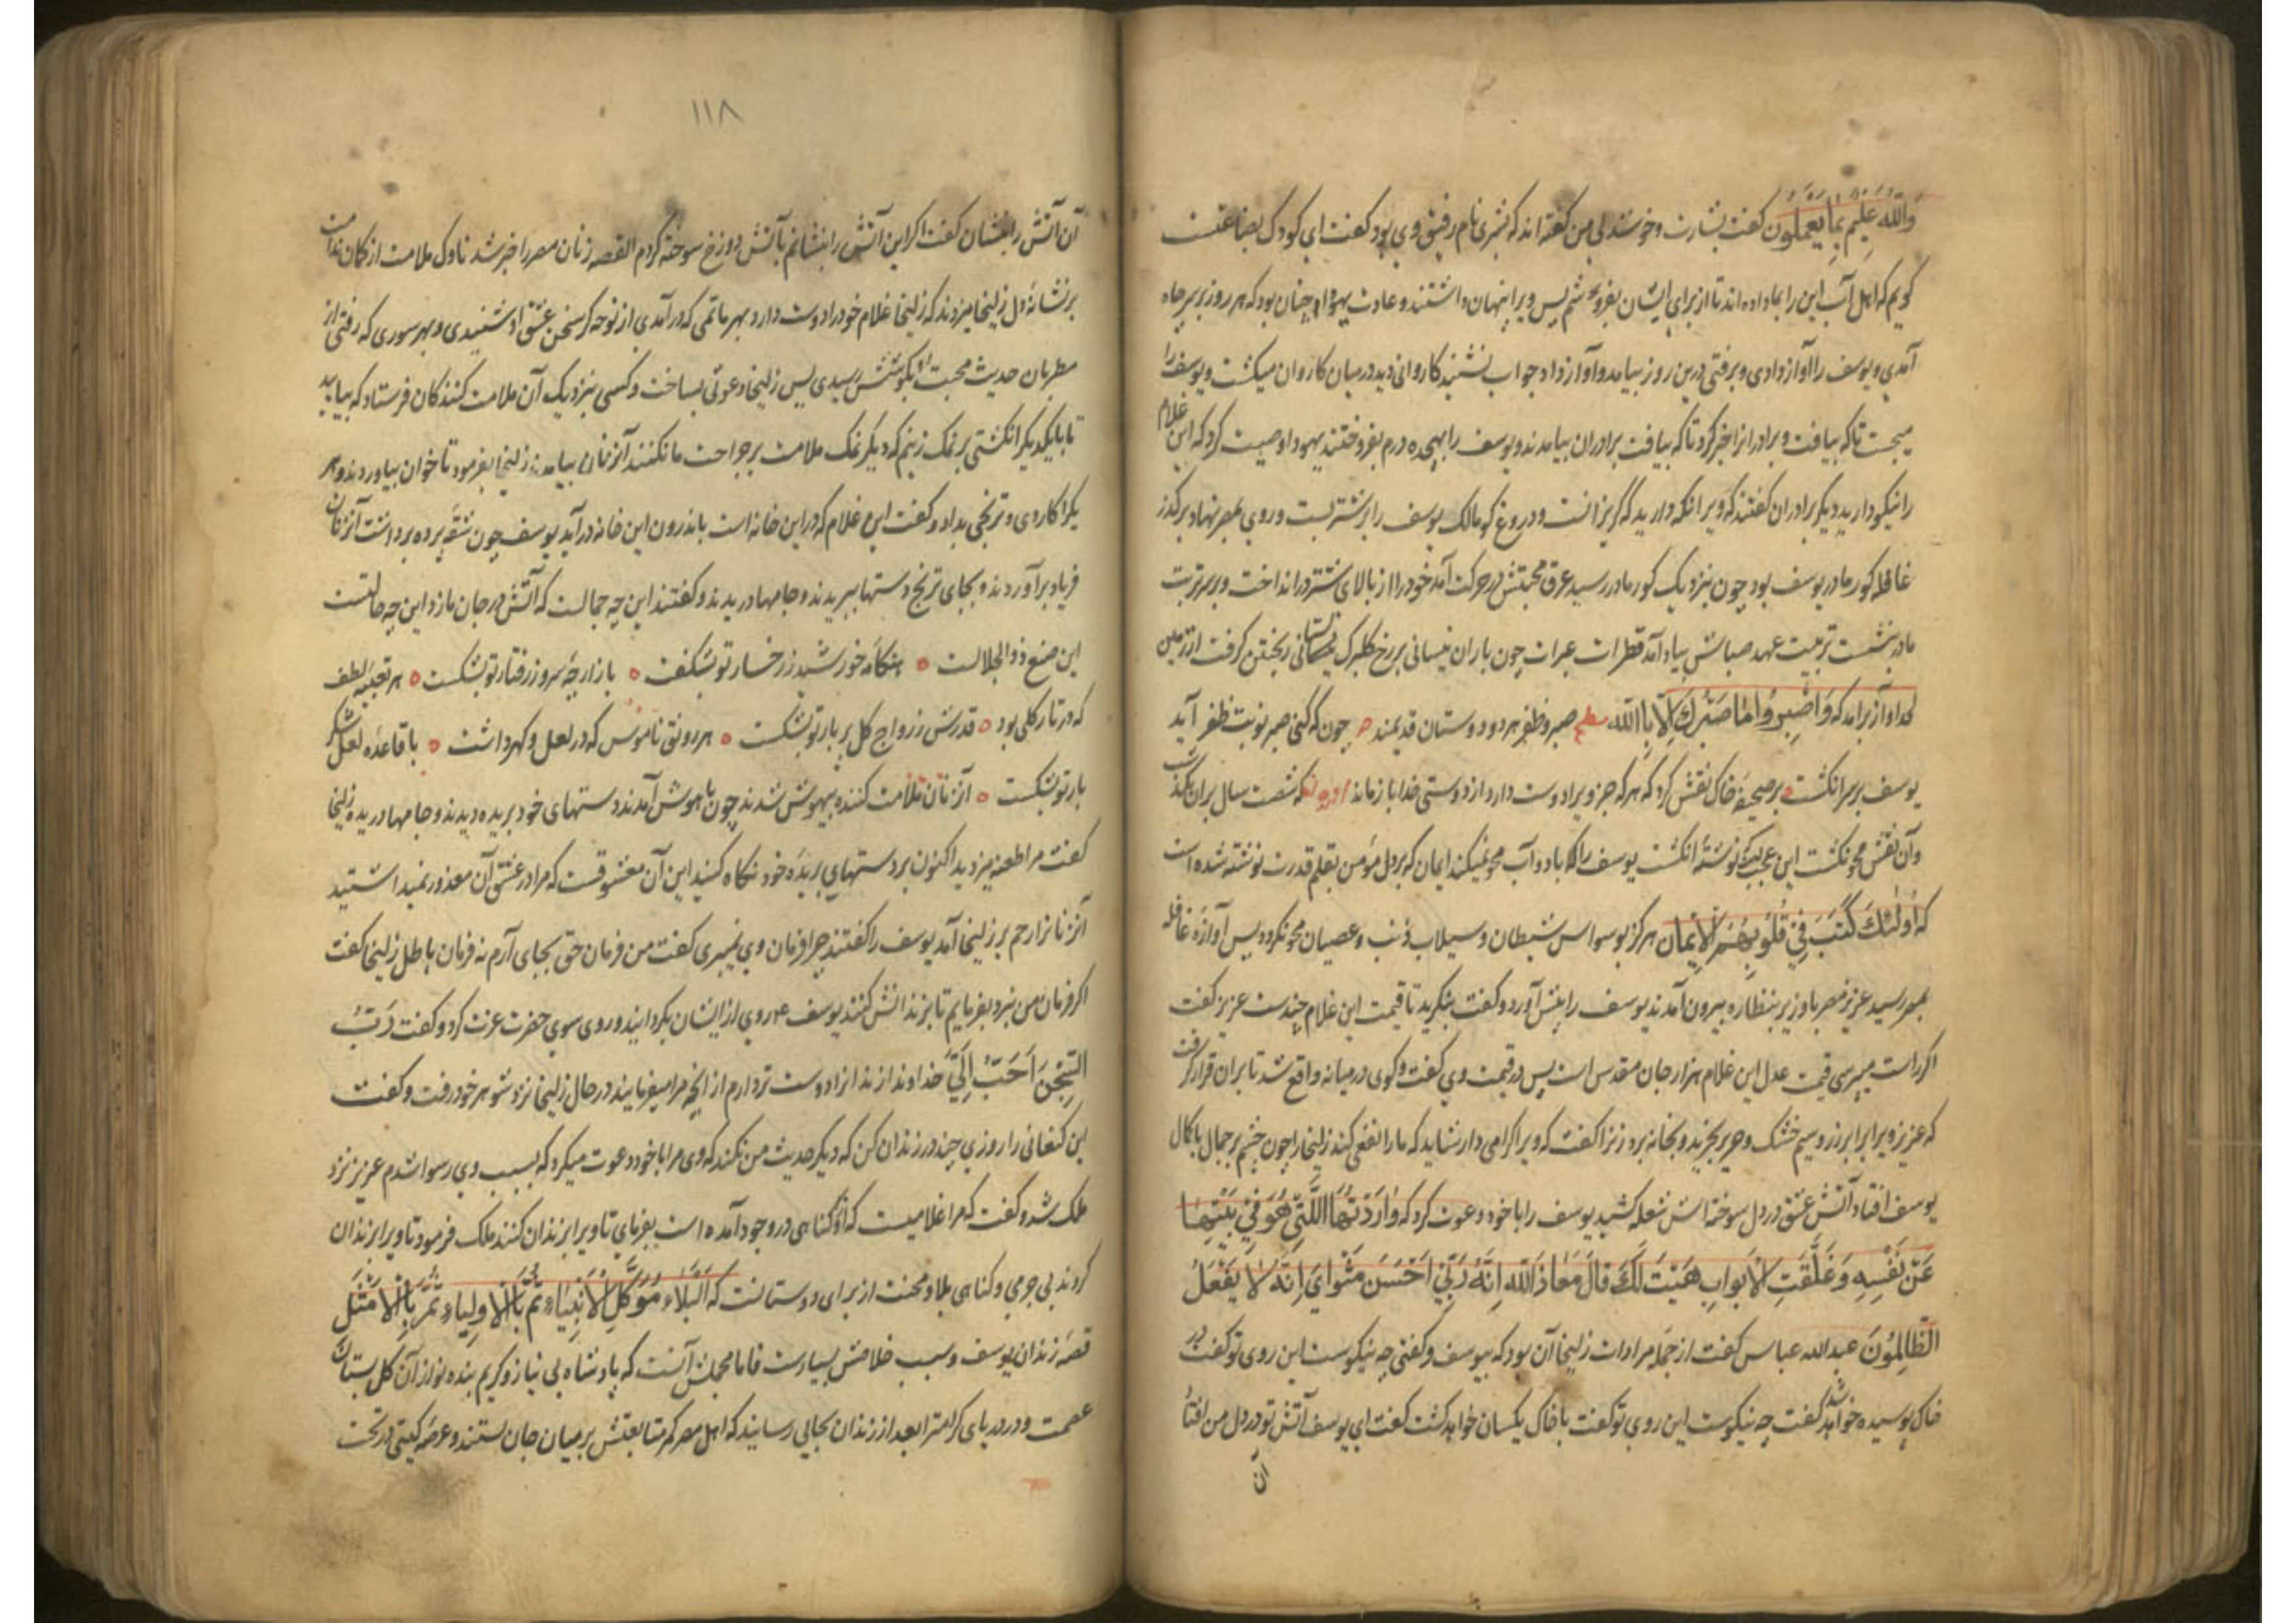 وَاللّٰهُ عَلِيمٌ بِمَا يَعْمَلُون کفت بشارت وخوشدلی من کفته‌اند که بشری نام رفیق وی بود کفت ای کودک بضاعتست
کویم که اهل آب این را بما داده‌اند تا از برای ایشان بفروشم پس ویرا پنهان داشتند وعادت یهودا چنان بود که هر روز بر سر چاه
آمدی ویوسف را آواز دادی وبرفتی درین روز بیامد وآواز داد جواب نشنید کاروانی دید در میان کاروان میکشت ویوسف را
میجست تا که بیافت وبرادرانرا خبر کرد تا که بیافت برادران بیامدند ویوسف را بهیجده درم بفروختند یهودا وصیت کرد که این غلام
را نیکو دارید دیکر برادران کفتند که ویرا نکه دارید که کریزانست ودروغ کو مالک یوسف را بر شتر بست وروی بمصر نهاد بر کذر
غافله کور مادر یوسف بود چون بنزدیک کور مادر رسید عرق محبتش در حرکت آمد خود را از بالای شتر در انداخت وبر سر تربت
مادر بنشست تربیت عهد صباش بیاد آمد قطرات عبرات چون باران نیسانی بر رخ کلبرک ریختن کرفت از زمین
لحد آواز برامد که وَاصْبِرْ وَمَا صَبْرُكَ اِلَّا بِاللّٰه صبر وظفر هر دو دوستان قدیمند چون که کنی صبر نوبت ظفر آید
یوسف بر سر انکشت بر صحیفهٔ خاک نقش کرد که هر که جز ویرا دوست دارد از دوستی خدا باز ماند که شصت سال بران بکذشت
وآن نقش محو نکشت این عجبیک نوشتهٔ انکشت یوسف را که باد وآب محو نمیکند ایمان که بر دل مؤمن بقلم قدرت نوشته شده است
که اُولٰئِكَ كَتَبَ فِي قُلُوبِهِمُ الْاِيمَان هرکز بوسواس شیطان وسیلاب ذنب وعصیان محو نکردد پس آوازهٔ غافله
بمصر رسید عزیز مصر با وزیر بنظاره بیرون آمدند یوسف را پیش آورد وکفت بنکرید تا قیمت این غلام چندست عزیز کفت
اکر راست میپرسی قیمت عدل این غلام هزار جان مقدس است پس در قیمت وی کفت وکوی در میانه واقع شد تا بران قرار کرفت
که عزیز ویرا برابر زر وسیم خشک وحریر بخرید وبخانه برد زنرا کفت که ویرا کرامی دار شاید که ما را نفعی کند زلیخا را چون چشم بر جمال با کمال
یوسف افتاد آتش عشق در دل سوخته‌اش شعله کشید یوسف را با خود دعوت کرد که وَرَاوَدَتْهُ الَّتِي هُوَ فِي بَيْتِهَا
عَنْ نَفْسِهِ وَغَلَّقَتِ الْاَبْوَابِ هَيْتَ لَكَ قَالَ مَعَاذَ اللّٰهِ اِنَّهُ رَبِّي اَحْسَنَ مَثْوَايَ اِنَّهُ لَا يَفْعَلُ
الظَّالِمُونَ عبدالله عباس کفت از جمله مرادات زلیخا آن بود که بیوسف وکفتی چه نیکوست این روی تو کفت در
خاک پوسیده خواهد شد کفت چه نیکوست این روی تو کفت با خاک یکسان خواهد کشت کفت ای یوسف آتش تو در دل من افتاد
آن
۱۱۸
آن آتش را بنشان کفت اکر این آتش را بنشانم بآتش دوزخ سوخته کردم القصه زنان مصر را خبر شد ناوک ملامت از کمان ندامت
بر نشانهٔ دل زلیخا میزدند که زلیخا غلام خود را دوست دارد بهر ماتمی که در آمدی از نوحه کر سخن عشق او شنیدی وبهر سوری که رفتی از
مطربان حدیث محبت او بکوشش رسیدی پس زلیخا دعوتی بساخت وکسی بنزدیک آن ملامت کنندکان فرستاد که بیایید
تا با یکدیکر انکشتی بر نمک زنیم که دیکر نمک ملامت بر جراحت ما نکنند آنزنان بیامدند زلیخا بفرمود تا خوان بیاوردند وهر
یکرا کاردی وترنجی بداد وکفت این غلام که در این خانه است باندرون این خانه در آید یوسف چون شقهٔ پرده برداشت آنزنان
فریاد برآوردند وبجای ترنج دستها ببریدند وجامها دریدند وکفتند این چه جمالست که آتش در جان ما زد این چه حالتست
این صنع ذو الجلالست ه هنکامهٔ خورشید ز رخسار تو بشکفت ه بازارچهٔ سرو ز رفتار تو بشکست ه هر تعبیهٔ لطف
که در تار کلی بود ه قدرش ز رواج کل پر بار تو بشکست ه هر رونق ناموس که در لعل وکهر داشت ه با قاعدهٔ لعل شکر
بار تو بشکست ه آنزنان ملامت کننده بیهوش شدند چون باهوش آمدند دستهای خود بریده دیدند وجامها دریده زلیخا
کفت مرا طعنه میزدید اکنون بر دستهای بریدهٔ خود نکاه کنید این آن معشوقست که مرا در عشق آن معذور نمیداشتید
آنزنانرا رحم بر زلیخا آمد یوسف را کفتند چرا فرمان وی نمیبری کفت من فرمان حق بجای آرم نه فرمان باطل زلیخا کفت
اکر فرمان من نبرد بفرمایم تا بزندانش کنند یوسف ع روی از ایشان بکردانید وروی سوی حضرت عزت کرد وکفت رَبِّ
السِّجْنُ اَحَبُّ اِلَيَّ خداوندا زندانرا دوست تر دارم از انچه مرا میفرمایند در حال زلیخا نزد شوهر خود رفت وکفت
این کنعانی را روزی چند در زندان کن که دیکر حدیث من نکند که وی مرا با خود دعوت میکرد که بسبب وی رسوا شدم عزیز نزد
ملک شد وکفت که مرا غلامیست که ازو کناهی در وجود آمده است بفرمای تا ویرا بزندان کنند ملک فرمود تا ویرا بزندان
کردند بی جرمی وکناهی بلا ومحنت از برای دوستانست که اَلْبَلَاءُ مُوَكَّلٌ الْاَنْبِيَاءِ ثُمَّ بِالْاَوْلِيَاءِ ثُمَّ بِالْاَمْثَلِ
قصهٔ زندان یوسف وسبب خلاصش بسیارست فاما مجملش آنست که پادشاه بی نیاز وکریم بنده نواز آن کل بستان
عصمت ودر دریای کرامترا بعد از زندان بجایی رسانید که اهل مصر کمر متابعتش بر میان جان بستند وعرصهٔ کیتی در تحت